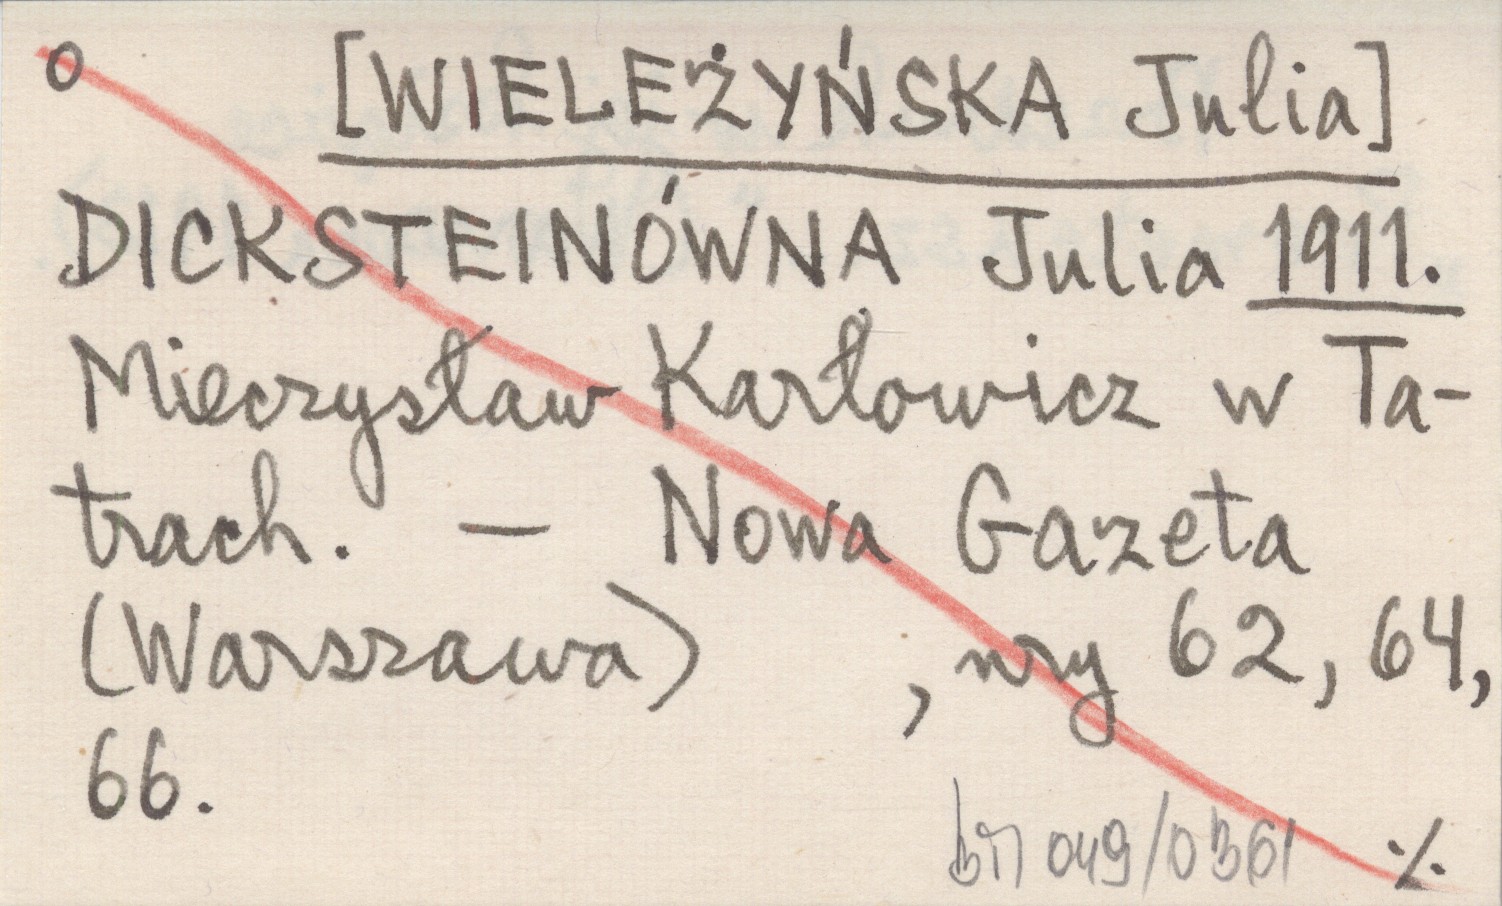 o [WIELEŻYŃSKA Julia]
DICKSTEINÓWNA Julia 1911.
Mieczysław Karłowicz w Ta-
trach. — Nowa Gazeta
(Warszawa) , nry 62, 64,
66.
049/0361 ./.